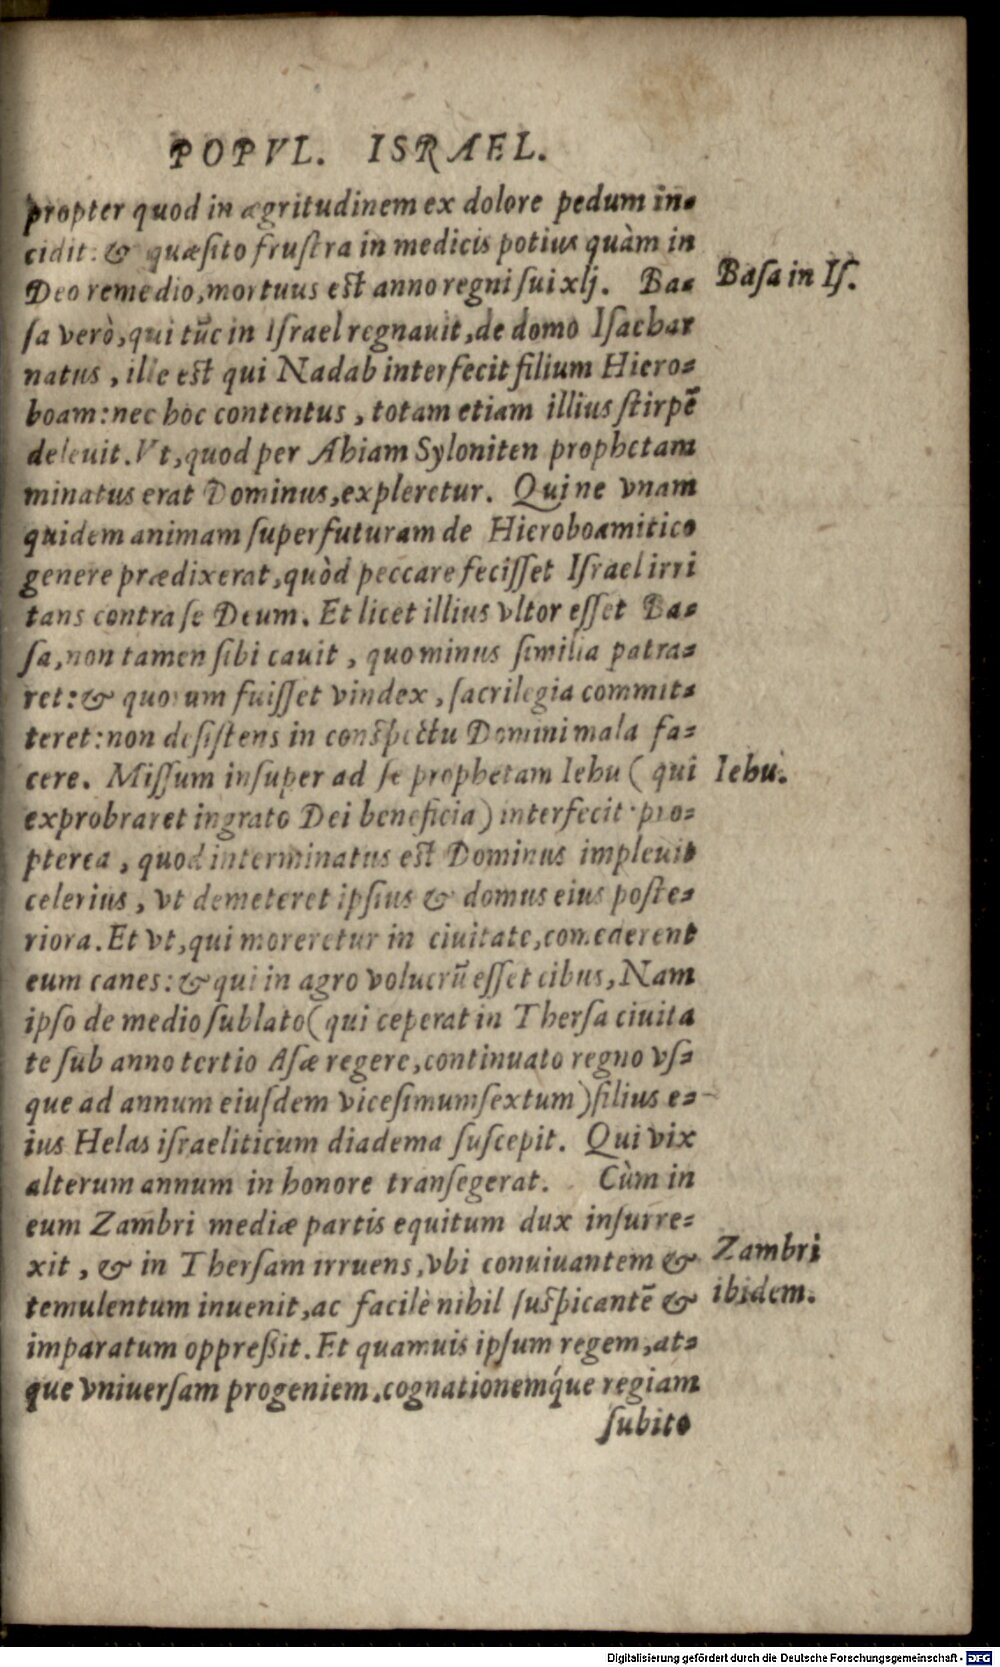 POPVL. ISRAEL.
propter quod in ægritudinem ex dolore pedum in=
cidit: & quæsito frustra in medicis potius quàm in
Deo remedio, mortuus est anno regni sui xlj. Ba=
Basa in Is.
sa verò, qui tũc in Israel regnauit, de domo Isachar
natus, ille est qui Nadab interfecit filium Hiero=
boam: nec hoc contentus, totam etiam illius stirpẽ
deleuit. Vt, quod per Ahiam Syloniten prophetam
minatus erat Dominus, expleretur. Qui ne vnam
quidem animam superfuturam de Hieroboamitico
genere prædixerat, quòd peccare fecisset Israel irri
tans contra se Deum. Et licet illius vltor esset Ba=
sa, non tamen sibi cauit, quo minus similia patra=
ret: & quorum fuisset vindex, sacrilegia commit=
teret: non desistens in conspectu Domini mala fa=
cere. Missum insuper ad se prophetam Iehu (qui
Iehu.
exprobraret ingrato Dei beneficia) interfecit: pro=
pterea, quod interminatus est Dominus impleuit
celerius, vt demeteret ipsius & domus eius poste=
riora. Et vt, qui moreretur in ciuitate, comederent
eum canes: & qui in agro volucrũ esset cibus, Nam
ipso de medio sublato (qui ceperat in Thersa ciuita
te sub anno tertio Asæ regere, continuato regno vs=
que ad annum eiusdem vicesimumsextum) filius e=
ius Helas israeliticum diadema suscepit. Qui vix
alterum annum in honore transegerat. Cùm in
eum Zambri mediæ partis equitum dux insurre=
xit, & in Thersam irruens, vbi conuiuantem &
Zambri
ibidem.
temulentum inuenit, ac facilè nihil suspicantẽ &
imparatum oppressit. Et quamuis ipsum regem, at=
que vniuersam progeniem, cognationemq́ue regiam
subito
Digitalisierung gefördert durch die Deutsche Forschungsgemeinschaft - DFG